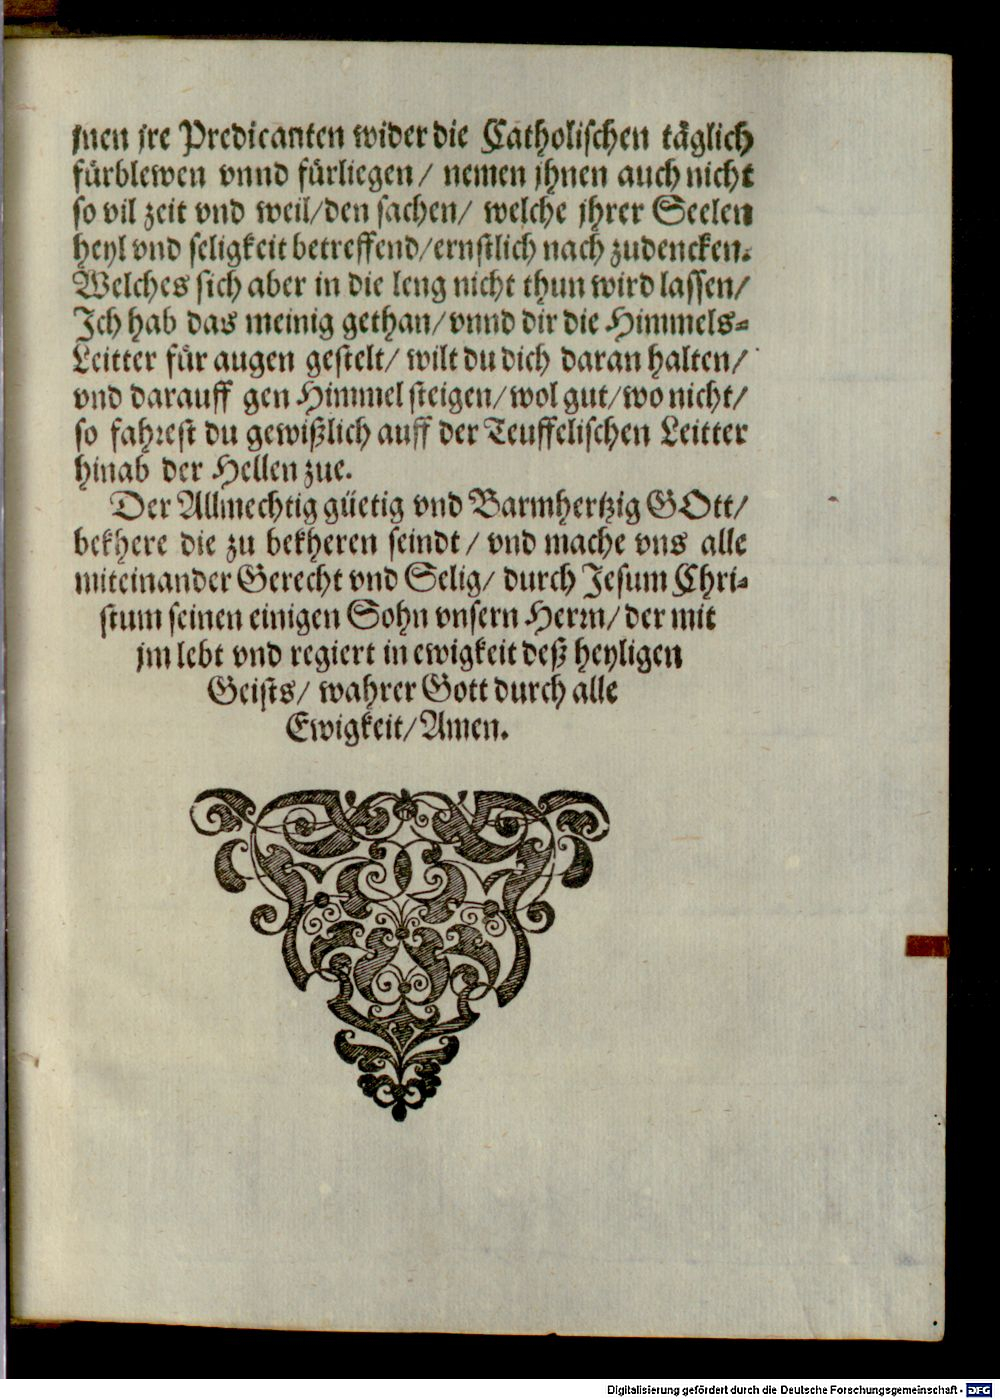 jnen jre Predicanten wider die Catholischen täglich
fürblewen vnnd fürliegen/ nemen jhnen auch nicht
so vil zeit vnd weil/den sachen/ welche jhrer Seelen
heyl vnd seligkeit betreffend/ernstlich nach zudencken.
Welches sich aber in die leng nicht thun wird lassen/
Ich hab das meinig gethan/vnnd dir die Himmels-
Leitter für augen gestelt/ wilt du dich daran halten/
vnd darauff gen Himmel steigen/wol gut/wo nicht/
so fahrest du gewißlich auff der Teuffelischen Leitter
hinab der Hellen zue.
Der Allmechtig güetig vnd Barmhertzig GOtt/
bekhere die zu bekheren seindt/ vnd mache vns alle
miteinander Gerecht vnd Selig/ durch Jesum Chri-
stum seinen einigen Sohn vnsern Herrn/der mit
jm lebt vnd regiert in ewigkeit deß heyligen
Geists/ wahrer Gott durch alle
Ewigkeit/Amen.
Digitalisierung gefördert durch die Deutsche Forschungsgemeinschaft - DFG